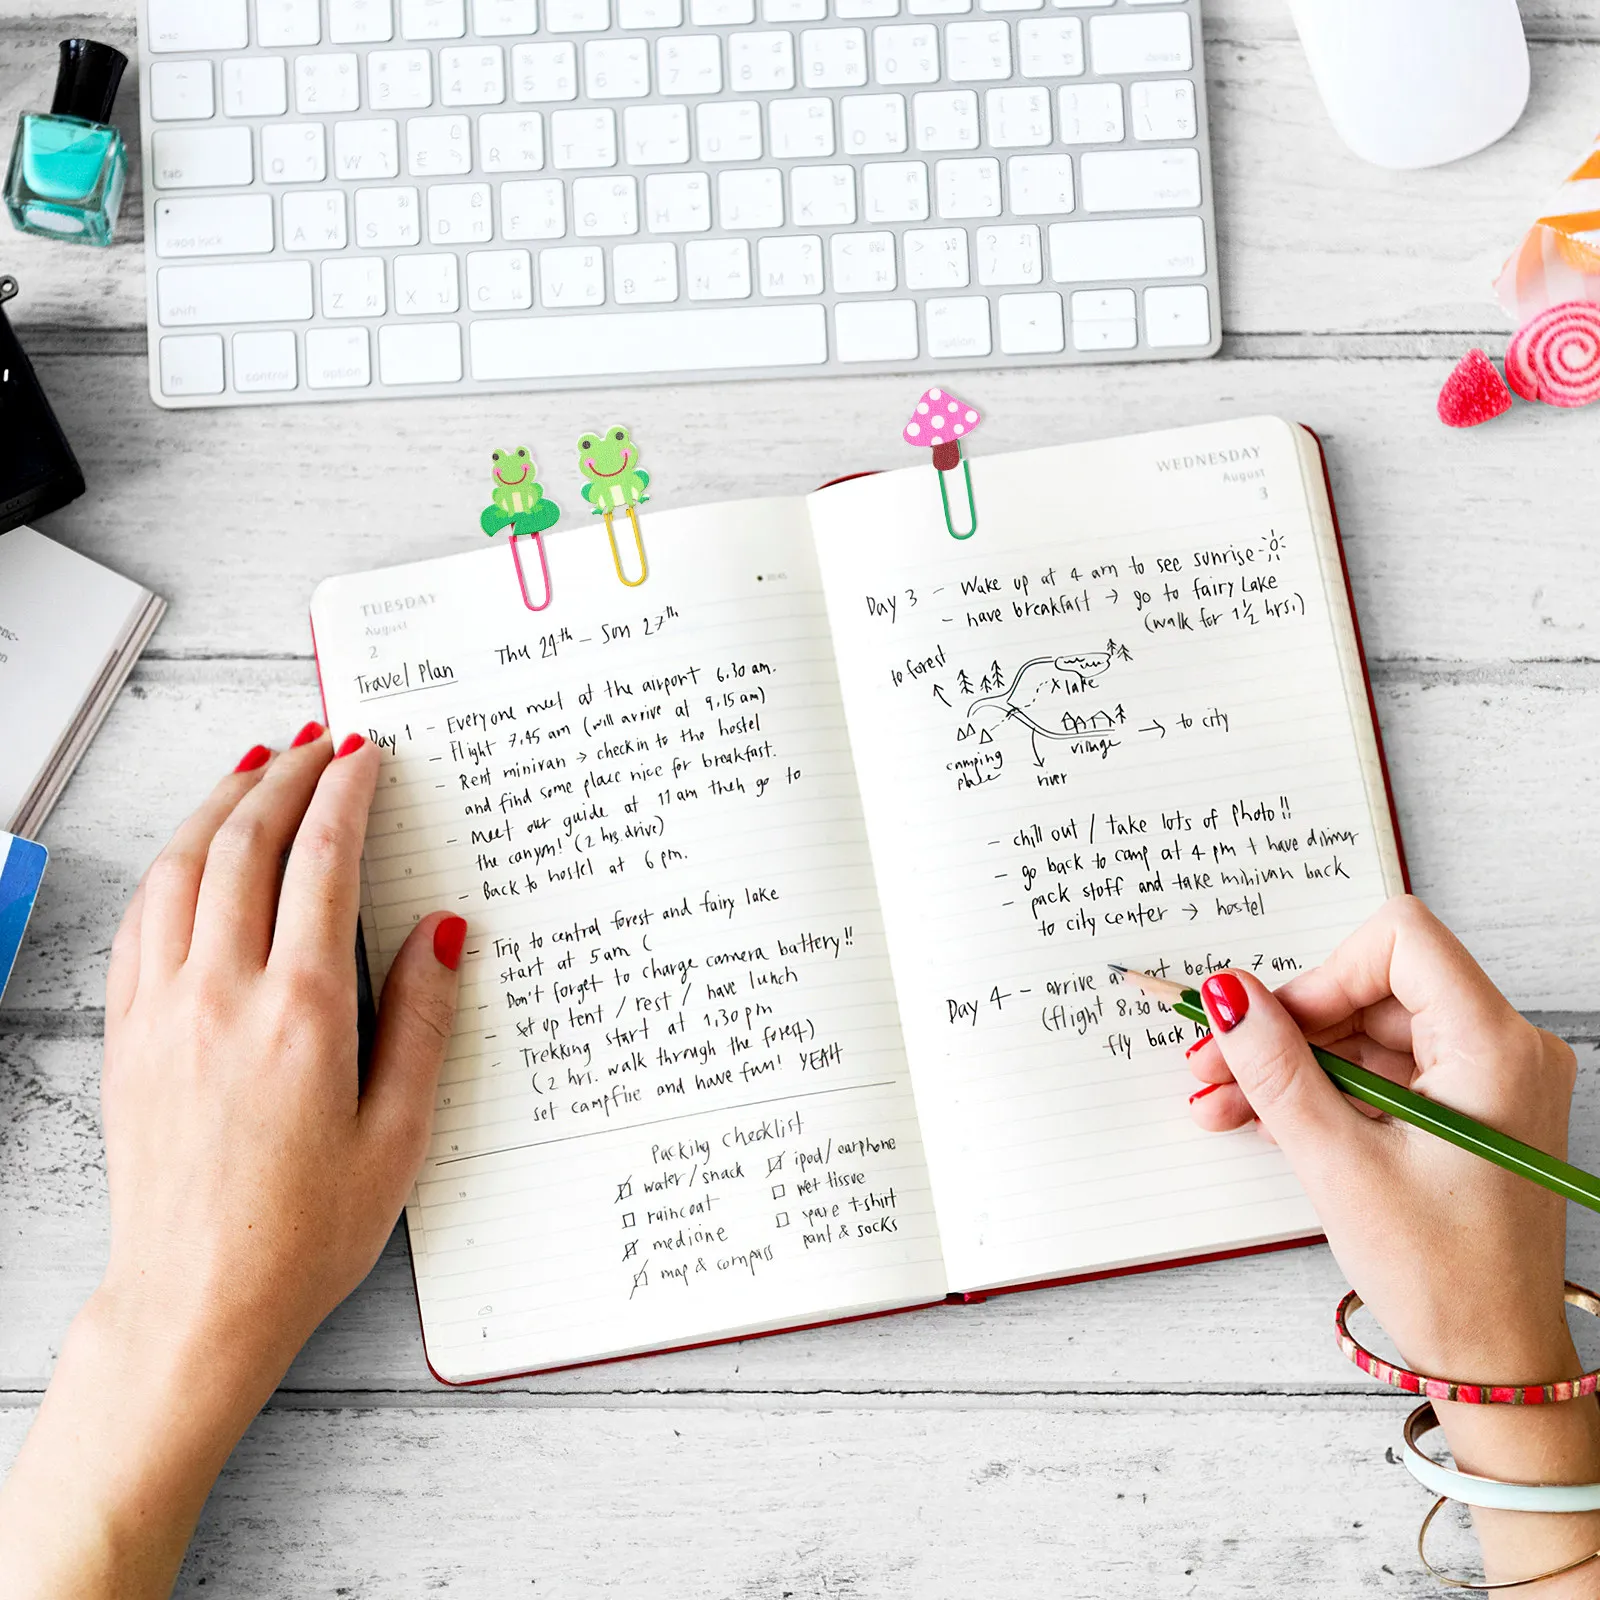 esc
delete
1
2
3
4
5
6
7
8
9
0
tab
Q
W
E
R
T
Y
U
I
O
P
caps lock
A
S
D
F
G
H
J
K
L
return
shift
Z
X
C
V
B
N
M
< ,
> .
? /
shift
fn
control
option
option
TUESDAY
August
2
Travel Plan
Thu 24th – Sun 27th
Day 1 - Everyone meet at the airport 6.30 am.
- Flight 7.45 am (will arrive at 9.15 am)
- Rent minivan → check in to the hostel
and find some place nice for breakfast.
- Meet our guide at 11 am then go to
the canyon! (2 hrs. drive)
- Back to hostel at 6 pm.
- Trip to central forest and fairy lake
start at 5 am (
- Don't forget to charge camera battery!!
- set up tent / rest / have lunch
- Trekking start at 1.30 pm
(2 hrs. walk through the forest)
set campfire and have fun! YEAH
Packing Checklist
water / snack
raincoat
medicine
map & compass
ipod / earphone
wet tissue
spare t-shirt
pant & socks
WEDNESDAY
August
3
Day 3 - Wake up at 4 am to see sunrise
- have breakfast → go to fairy Lake
(walk for 1 1/2 hrs.)
to forest
x lake
camping
place
village
→ to city
river
- chill out / take lots of photo!!
- go back to camp at 4 pm + have dinner
- pack stoff and take minivan back
to city center → hostel
Day 4 - arrive before 7 am.
(flight 8.30
fly back